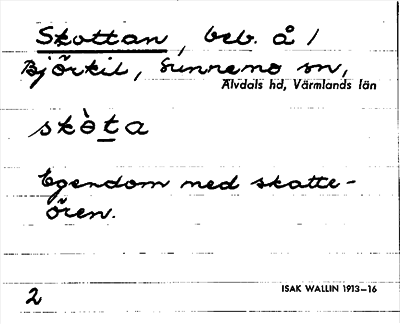 Skottan, beb. å /
Björkil, Sunnemo sn,
Älvdals hd, Värmlands län
skò̀ta
Egendom med skatte-
ören.
ISAK WALLIN 1913—16
2